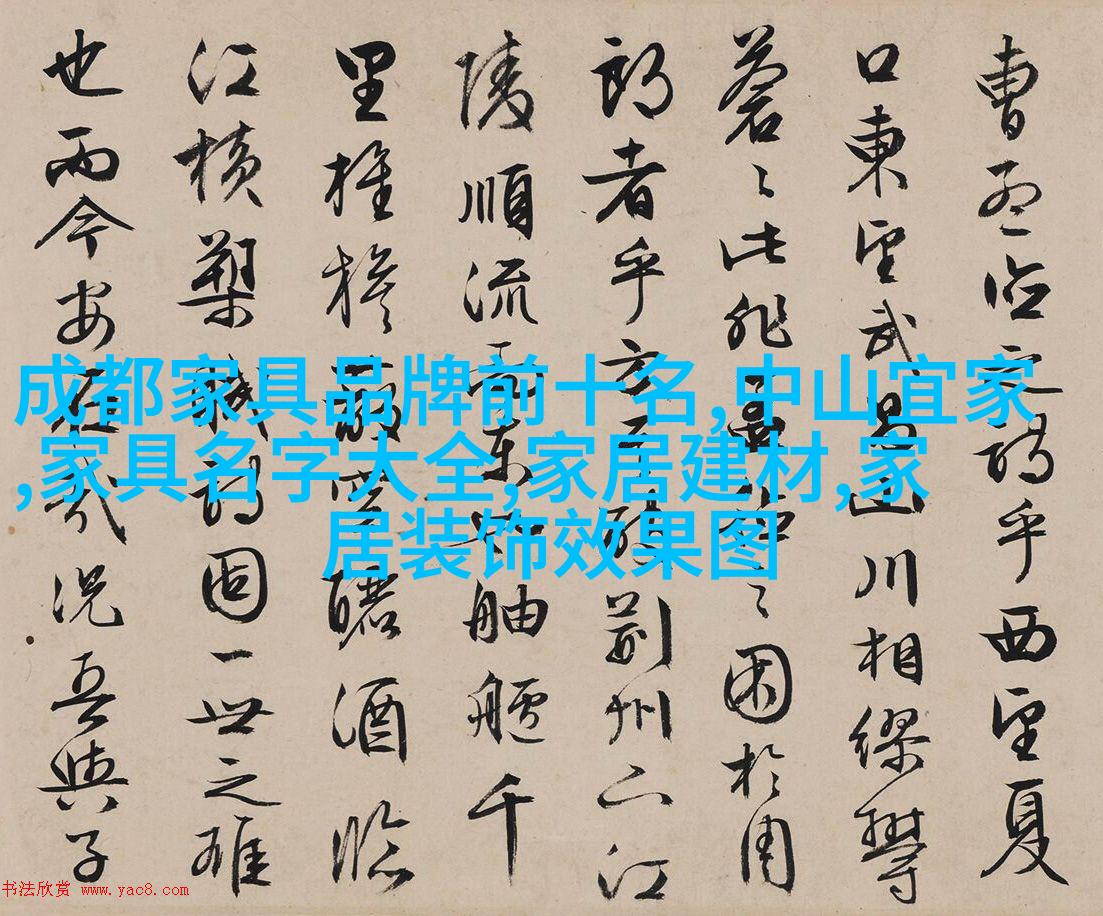 曹孟德之詩乎西望夏
口東望武昌山川相繆欝
蒼〻此非孟德之困於周
郎者乎方其破荊州下江
陵順流而東也舳艫千
里旌旗蔽空釃酒臨
江橫槊賦詩固一世之雄
也而今安在哉況吾與子
成都家具品牌前十名,中山宜家
,家具名字大全,家居建材,家
居装饰效果图
书法欣赏 www.yac8.com